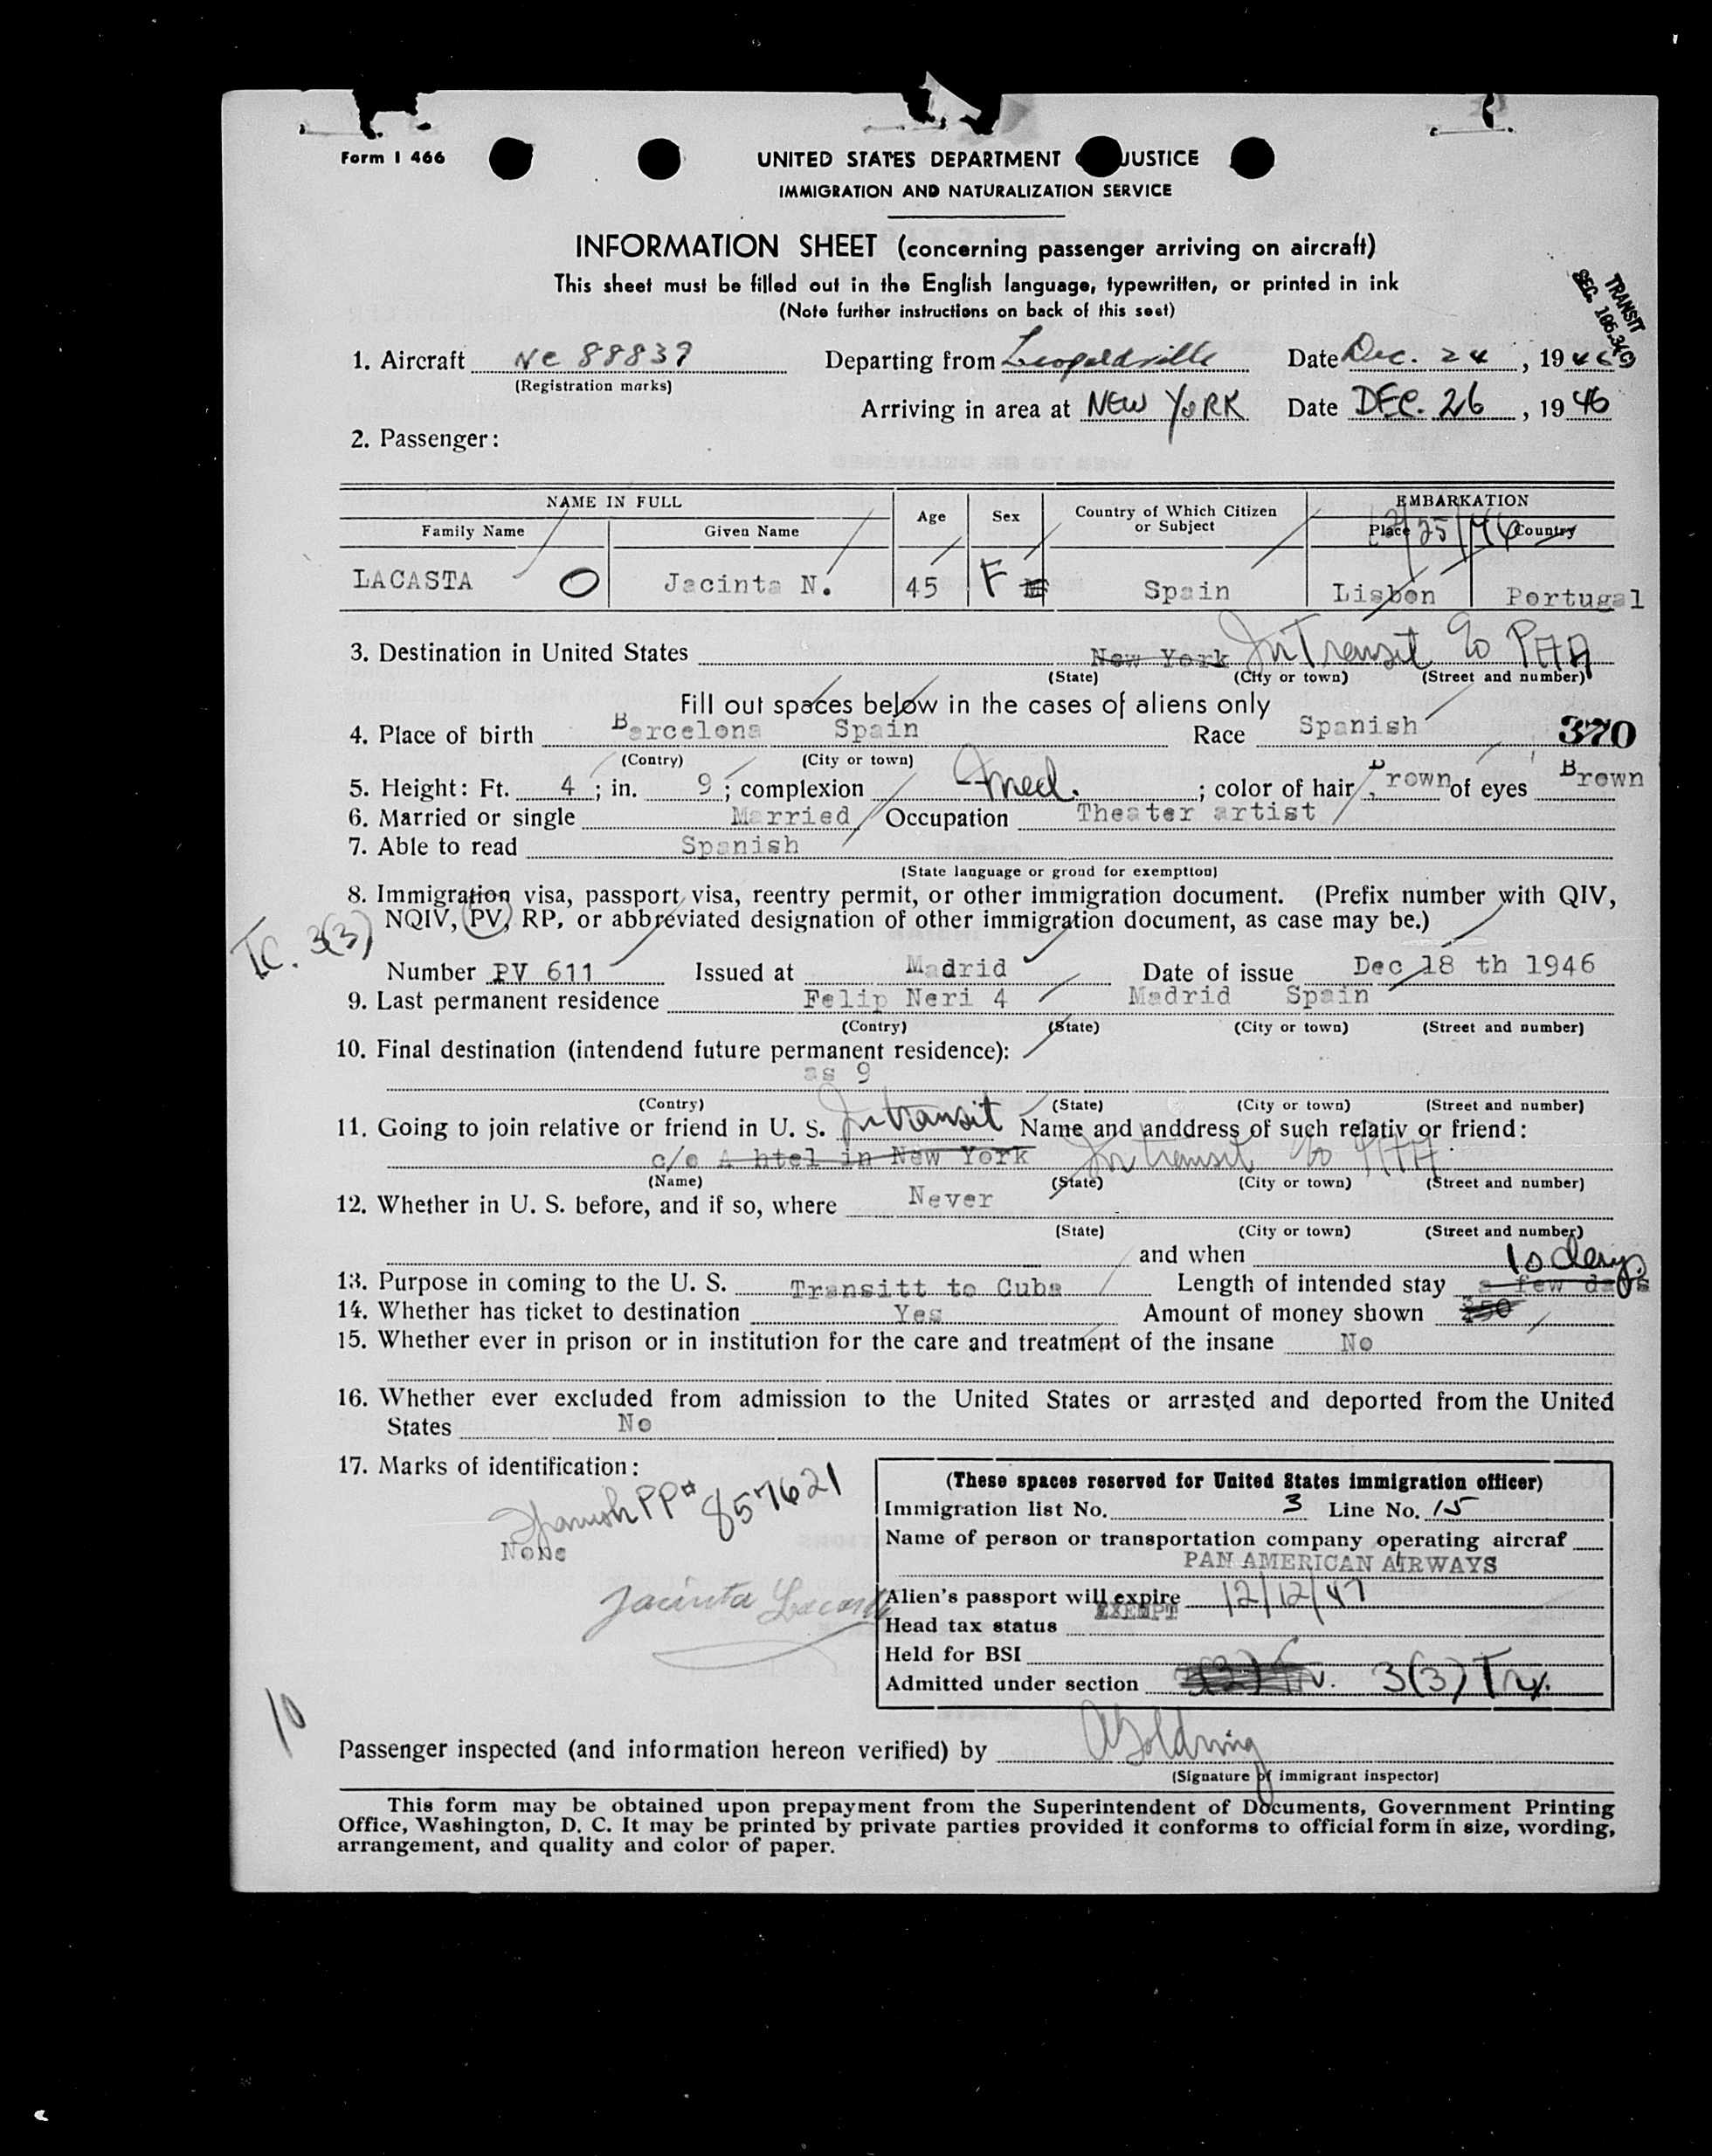 Form I 466
UNITED STATES DEPARTMENT JUSTICE
IMMIGRATION AND NATURALIZATION SERVICE
INFORMATION SHEET (concerning passenger arriving on aircraft)
This sheet must be filled out in the English language, typewritten, or printed in ink
(Note further instructions on back of this seet)
TRANSIT
SEC. 195.34(C)
1. Aircraft NC 88839 Departing from Leopoldville Date Dec. 24, 1946
(Registration marks)
Arriving in area at NEW YORK Date DEC. 26, 1946
2. Passenger:
NAME IN FULL Age Sex Country of Which Citizen or Subject EMBARKATION
Family Name Given Name Place Country
12/25/46
LACASTA O Jacinta N. 45 F M Spain Lisbon Portugal
3. Destination in United States New York In Transit c/o PAA
(State) (City or town) (Street and number)
Fill out spaces below in the cases of aliens only
4. Place of birth Barcelona Spain Race Spanish 370
(Contry) (City or town)
5. Height: Ft. 4; in. 9; complexion med.; color of hair Brown of eyes Brown
6. Married or single Married Occupation Theater artist
7. Able to read Spanish
(State language or groud for exemption)
8. Immigration visa, passport visa, reentry permit, or other immigration document. (Prefix number with QIV,
NQIV, PV, RP, or abbreviated designation of other immigration document, as case may be.)
TC. 3(3)
Number PV 611 Issued at Madrid Date of issue Dec 18 th 1946
9. Last permanent residence Felip Neri 4 Madrid Spain
(Contry) (State) (City or town) (Street and number)
10. Final destination (intendend future permanent residence):
as 9
(Contry) (State) (City or town) (Street and number)
11. Going to join relative or friend in U. S. In transit Name and anddress of such relativ or friend:
c/o A htel in New York In transit c/o PAA
(Name) (State) (City or town) (Street and number)
12. Whether in U. S. before, and if so, where Never
(State) (City or town) (Street and number)
and when
10 days
13. Purpose in coming to the U. S. Transitt to Cuba Length of intended stay a few days
14. Whether has ticket to destination Yes Amount of money shown
15. Whether ever in prison or in institution for the care and treatment of the insane No
16. Whether ever excluded from admission to the United States or arrested and deported from the United
States No
17. Marks of identification:
Spanish PP# 857621
None
Jacinta Lacasta
(These spaces reserved for United States immigration officer)
Immigration list No. 3 Line No. 15
Name of person or transportation company operating aircraf
PAN AMERICAN AIRWAYS
Alien's passport will expire 12/12/47
EXEMPT
Head tax status
Held for BSI
Admitted under section 3(3) Trv.
10
Passenger inspected (and information hereon verified) by A Goldring
(Signature of immigrant inspector)
This form may be obtained upon prepayment from the Superintendent of Documents, Government Printing
Office, Washington, D. C. It may be printed by private parties provided it conforms to official form in size, wording,
arrangement, and quality and color of paper.